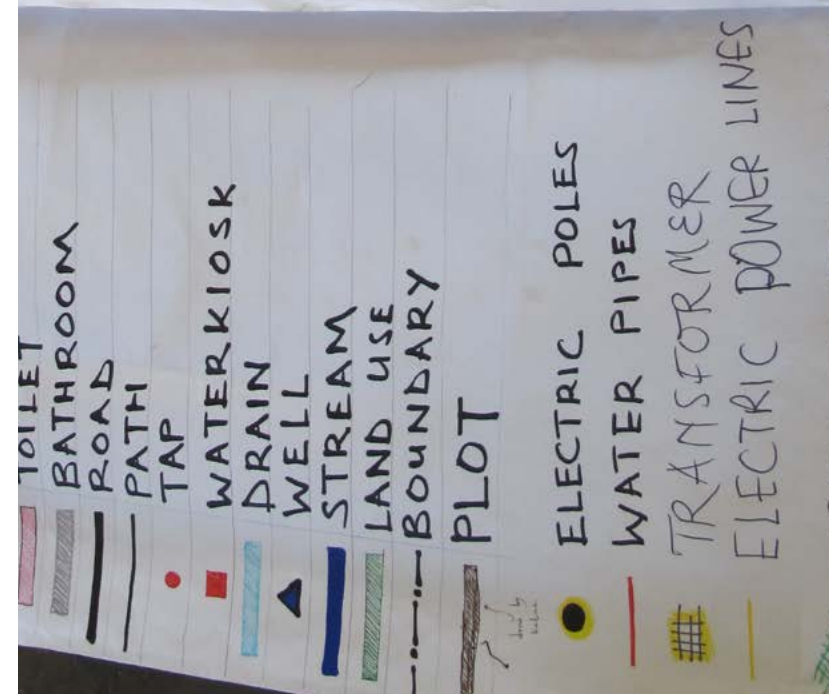 TOILET
BATHROOM
ROAD
PATH
TAP
WATERKIOSK
DRAIN
WELL
STREAM
LAND USE
BOUNDARY
PLOT
ELECTRIC POLES
WATER PIPES
TRANSFORMER
ELECTRIC POWER LINES